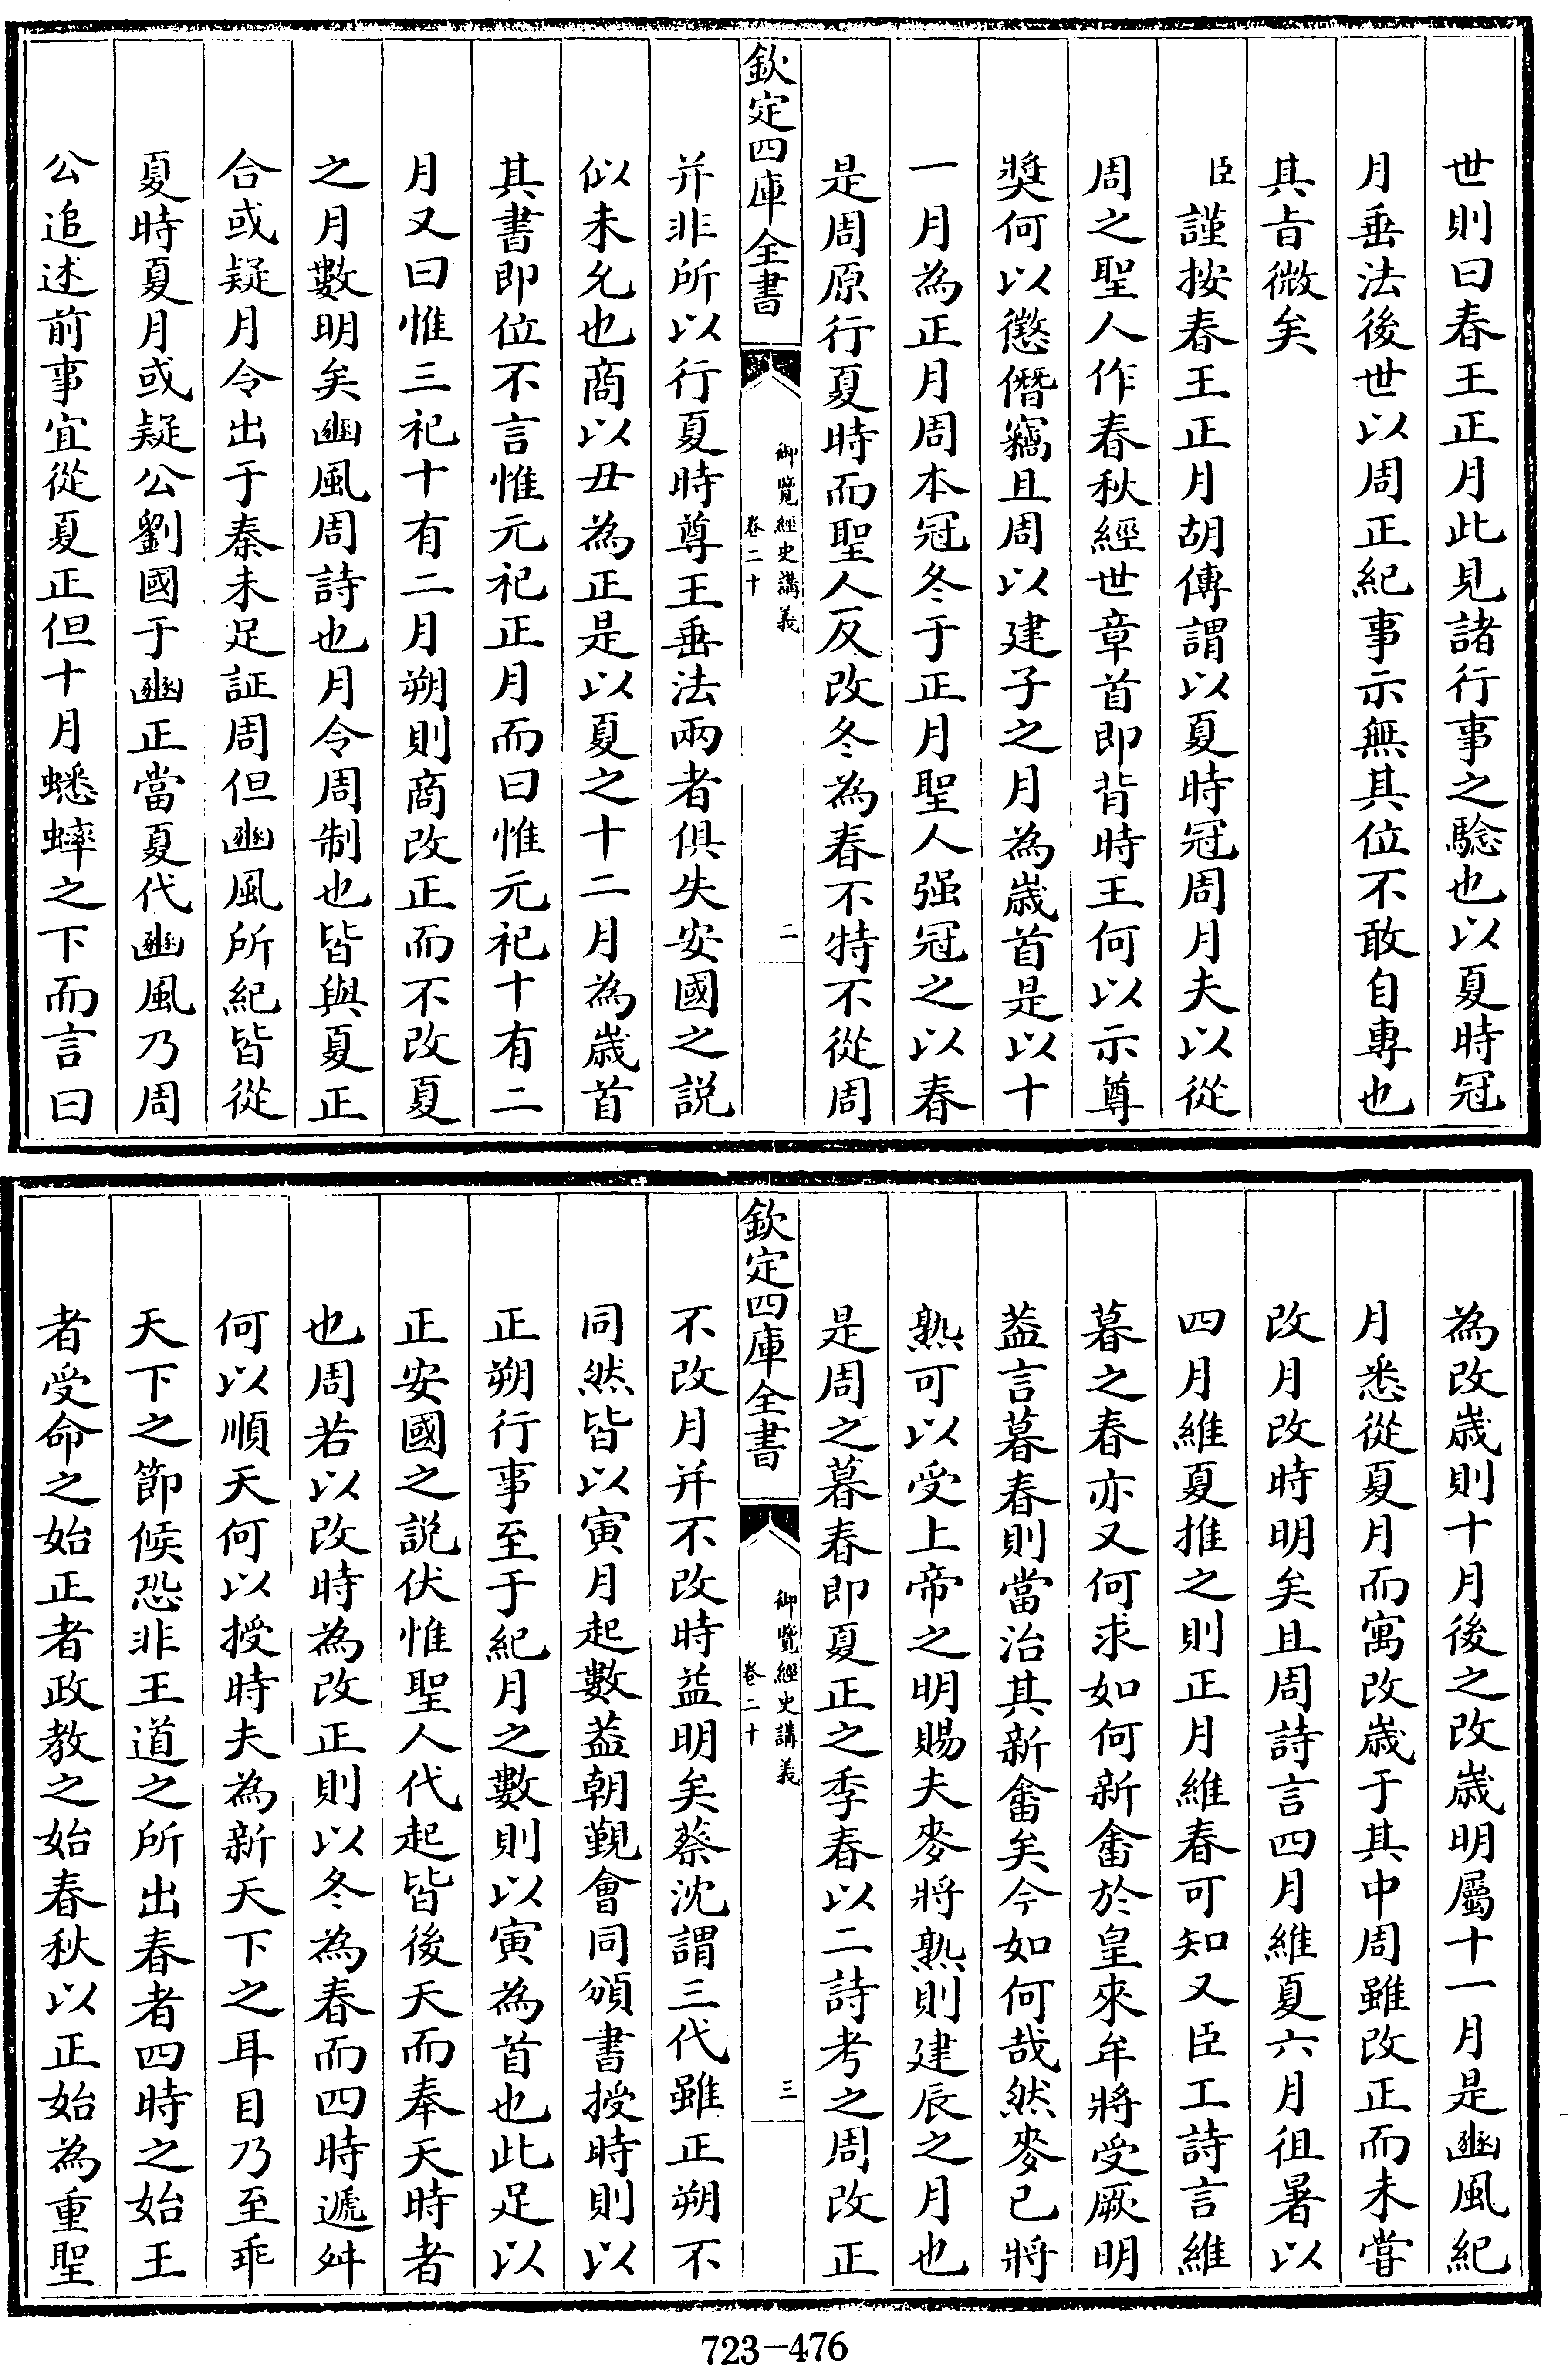 世則曰春王正月此見諸行事之騐也以夏時冠
月垂法後世以周正紀事示無其位不敢自專也
其㫖微矣
臣謹按春王正月胡傳謂以夏時冠周月夫以從
周之聖人作春秋經世章首即背時王何以示尊
奬何以懲僭竊且周以建子之月為歳首是以十
一月為正月周本冠冬于正月聖人强冠之以春
是周原行夏時而聖人反改冬為春不特不從周
欽定四庫全書
御覽經史講義
卷二十
二
并非所以行夏時尊王垂法兩者俱失安國之説
似未允也商以丑為正是以夏之十二月為歳首
其書即位不言惟元祀正月而曰惟元祀十有二
月又曰惟三祀十有二月朔則商改正而不改夏
之月數明矣豳風周詩也月令周制也皆與夏正
合或疑月令出于秦未足証周但豳風所紀皆從
夏時夏月或疑公劉國于豳正當夏代豳風乃周
公追述前事宜從夏正但十月蟋蟀之下而言曰
為改歳則十月後之改歳明屬十一月是豳風紀
月悉從夏月而寓改歳于其中周雖改正而未嘗
改月改時明矣且周詩言四月維夏六月徂暑以
四月維夏推之則正月維春可知又臣工詩言維
暮之春亦又何求如何新畬於皇來牟將受厥明
葢言暮春則當治其新畬矣今如何哉然麥已將
熟可以受上帝之明賜夫麥將熟則建辰之月也
是周之暮春即夏正之季春以二詩考之周改正
欽定四庫全書
御覽經史講義
卷二十
三
不改月并不改時益明矣蔡沈謂三代雖正朔不
同然皆以寅月起數葢朝覲會同頒書授時則以
正朔行事至于紀月之數則以寅為首也此足以
正安國之説伏惟聖人代起皆後天而奉天時者
也周若以改時為改正則以冬為春而四時遞舛
何以順天何以授時夫為新天下之耳目乃至乖
天下之節候恐非王道之所出春者四時之始王
者受命之始正者政教之始春秋以正始為重聖
723-476